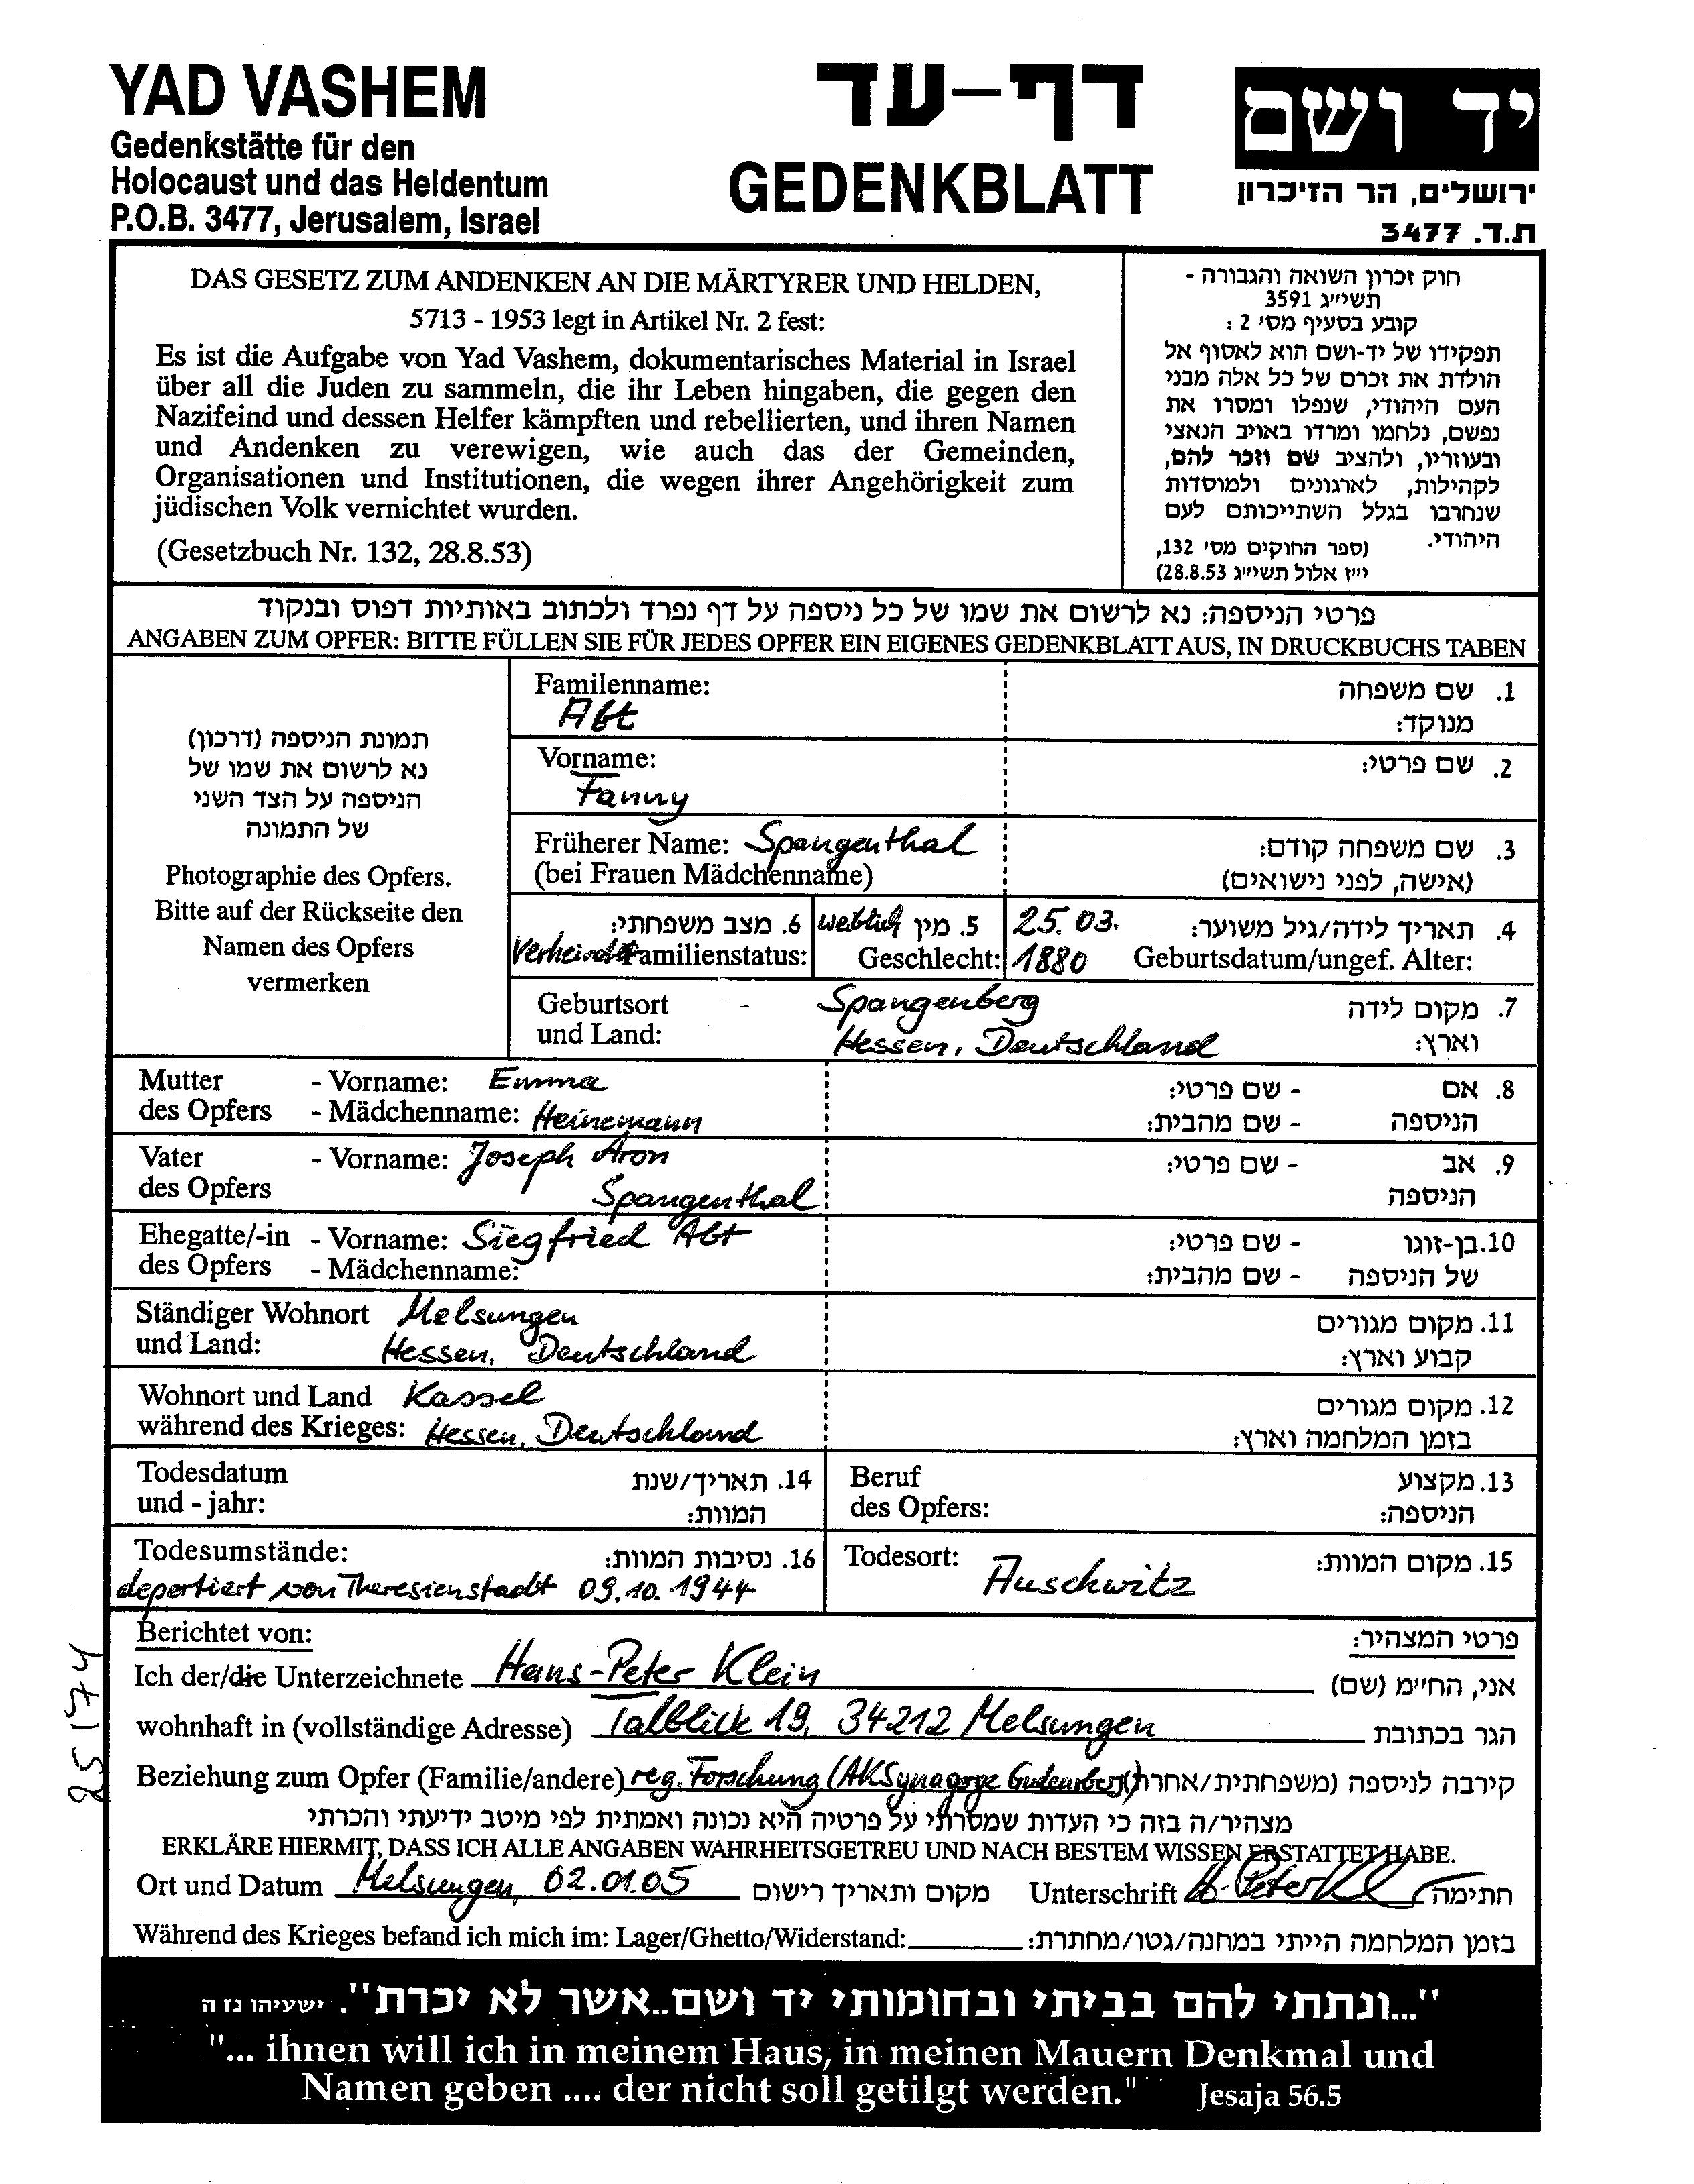 YAD VASHEM
Gedenkstätte für den
Holocaust und das Heldentum
P.O.B. 3477, Jerusalem, Israel
דף-עד
GEDENKBLATT
יד ושם
ירושלים, הר הזיכרון
ת.ד. 3477
DAS GESETZ ZUM ANDENKEN AN DIE MÄRTYRER UND HELDEN,
5713 - 1953 legt in Artikel Nr. 2 fest:
Es ist die Aufgabe von Yad Vashem, dokumentarisches Material in Israel
über all die Juden zu sammeln, die ihr Leben hingaben, die gegen den
Nazifeind und dessen Helfer kämpften und rebellierten, und ihren Namen
und Andenken zu verewigen, wie auch das der Gemeinden,
Organisationen und Institutionen, die wegen ihrer Angehörigkeit zum
jüdischen Volk vernichtet wurden.
(Gesetzbuch Nr. 132, 28.8.53)
חוק זכרון השואה והגבורה -
תשי״ג 3591
קובע בסעיף מס׳ 2 :
תפקידו של יד-ושם הוא לאסוף אל
הולדת את זכרם של כל אלה מבני
העם היהודי, שנפלו ומסרו את
נפשם, נלחמו ומרדו באויב הנאצי
ובעוזריו, ולהציב שם וזכר להם,
לקהילות, לארגונים ולמוסדות
שנחרבו בגלל השתייכותם לעם
היהודי.
(ספר החוקים מס׳ 132,
י״ז אלול תשי״ג 28.8.53)
פרטי הניספה: נא לרשום את שמו של כל ניספה על דף נפרד ולכתוב באותיות דפוס ובנקוד
ANGABEN ZUM OPFER: BITTE FÜLLEN SIE FÜR JEDES OPFER EIN EIGENES GEDENKBLATT AUS, IN DRUCKBUCHS TABEN
תמונת הניספה (דרכון)
נא לרשום את שמו של
הניספה על הצד השני
של התמונה
Photographie des Opfers.
Bitte auf der Rückseite den
Namen des Opfers
vermerken
Familenname: 1. שם משפחה
Abt מנוקד:
Vorname: 2. שם פרטי:
Fanny
Früherer Name: Spangenthal 3. שם משפחה קודם:
(bei Frauen Mädchenname) (אישה, לפני נישואים)
6. מצב משפחתי: weiblich 5. מין 25.03. 4. תאריך לידה/גיל משוער:
Verheiratet Familienstatus: Geschlecht: 1880 Geburtsdatum/ungef. Alter:
Geburtsort - Spangenberg 7. מקום לידה
und Land: Hessen, Deutschland וארץ:
Mutter - Vorname: Emma 8. אם - שם פרטי:
des Opfers - Mädchenname: Heinemann הניספה - שם מהבית:
Vater - Vorname: Joseph Aron 9. אב - שם פרטי:
des Opfers Spangenthal הניספה
Ehegatte/-in - Vorname: Siegfried Abt 10. בן-זוגו - שם פרטי:
des Opfers - Mädchenname: של הניספה - שם מהבית:
Ständiger Wohnort Melsungen 11. מקום מגורים
und Land: Hessen, Deutschland קבוע וארץ:
Wohnort und Land Kassel 12. מקום מגורים
während des Krieges: Hessen, Deutschland בזמן המלחמה וארץ:
Todesdatum 14. תאריך/שנת Beruf 13. מקצוע
und - jahr: המוות: des Opfers: הניספה:
Todesumstände: 16. נסיבות המוות: Todesort: Auschwitz 15. מקום המוות:
deportiert von Theresienstadt 09.10.1944
Berichtet von: פרטי המצהיר:
Ich der/die Unterzeichnete Hans-Peter Klein אני, החי״מ (שם)
wohnhaft in (vollständige Adresse) Talblick 19, 34212 Melsungen הגר בכתובת
Beziehung zum Opfer (Familie/andere) reg. Forschung (AK Synagoge Gudensberg) קירבה לניספה (משפחתית/אחרת)
מצהיר/ה בזה כי העדות שמסרתי על פרטיה היא נכונה ואמתית לפי מיטב ידיעתי והכרתי
ERKLÄRE HIERMIT, DASS ICH ALLE ANGABEN WAHRHEITSGETREU UND NACH BESTEM WISSEN ERSTATTET HABE.
Ort und Datum Melsungen, 02.01.05 מקום ותאריך רישום Unterschrift H.-Peter Kl חתימה
Während des Krieges befand ich mich im: Lager/Ghetto/Widerstand: בזמן המלחמה הייתי במחנה/גטו/מחתרת:
25174
"...ונתתי להם בביתי ובחומותי יד ושם..אשר לא יכרת". ישעיהו נז ה
"... ihnen will ich in meinem Haus, in meinen Mauern Denkmal und
Namen geben .... der nicht soll getilgt werden." Jesaja 56.5